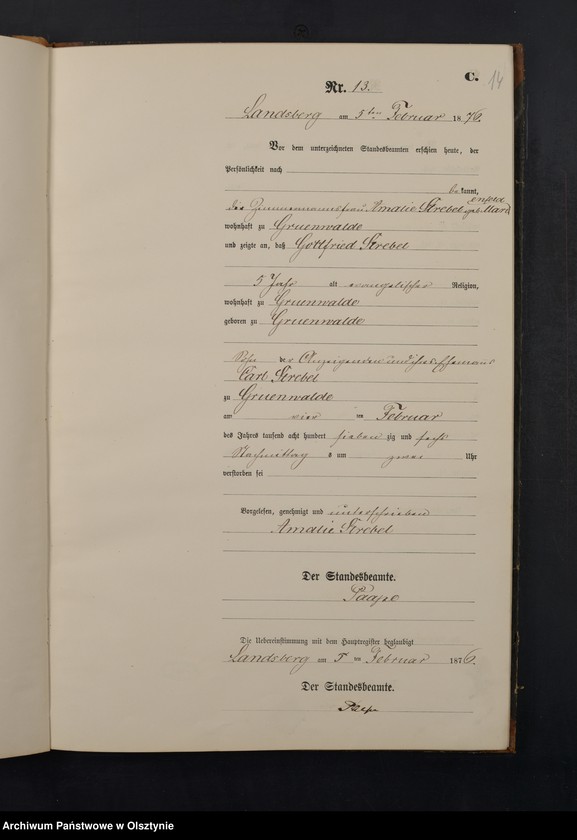 C. 14
Nr. 13.
Landsberg am 5ten Februar 1876.
Vor dem unterzeichneten Standesbeamten erschien heute, der
Persönlichkeit nach
be kannt,
die Zimmermannsfrau Amalie Strebel geb.
wohnhaft zu Gruenwalde
und zeigte an, daß Gottfried Strebel
5 Jahr alt evangelischer Religion,
wohnhaft zu Gruenwalde
geboren zu Gruenwalde
Sohn der Anzeigenden und ihres Ehemanns
Carl Strebel
zu Gruenwalde
am vier ten Februar
des Jahres tausend acht hundert sieben zig und sechs
Nachmittag s um zwei Uhr
verstorben sei
Vorgelesen, genehmigt und unterschrieben
Amalie Strebel
Der Standesbeamte.
Paape
Die Uebereinstimmung mit dem Hauptregister beglaubigt
Landsberg am 5 ten Februar 1876.
Der Standesbeamte.
Paape
Archiwum Państwowe w Olsztynie